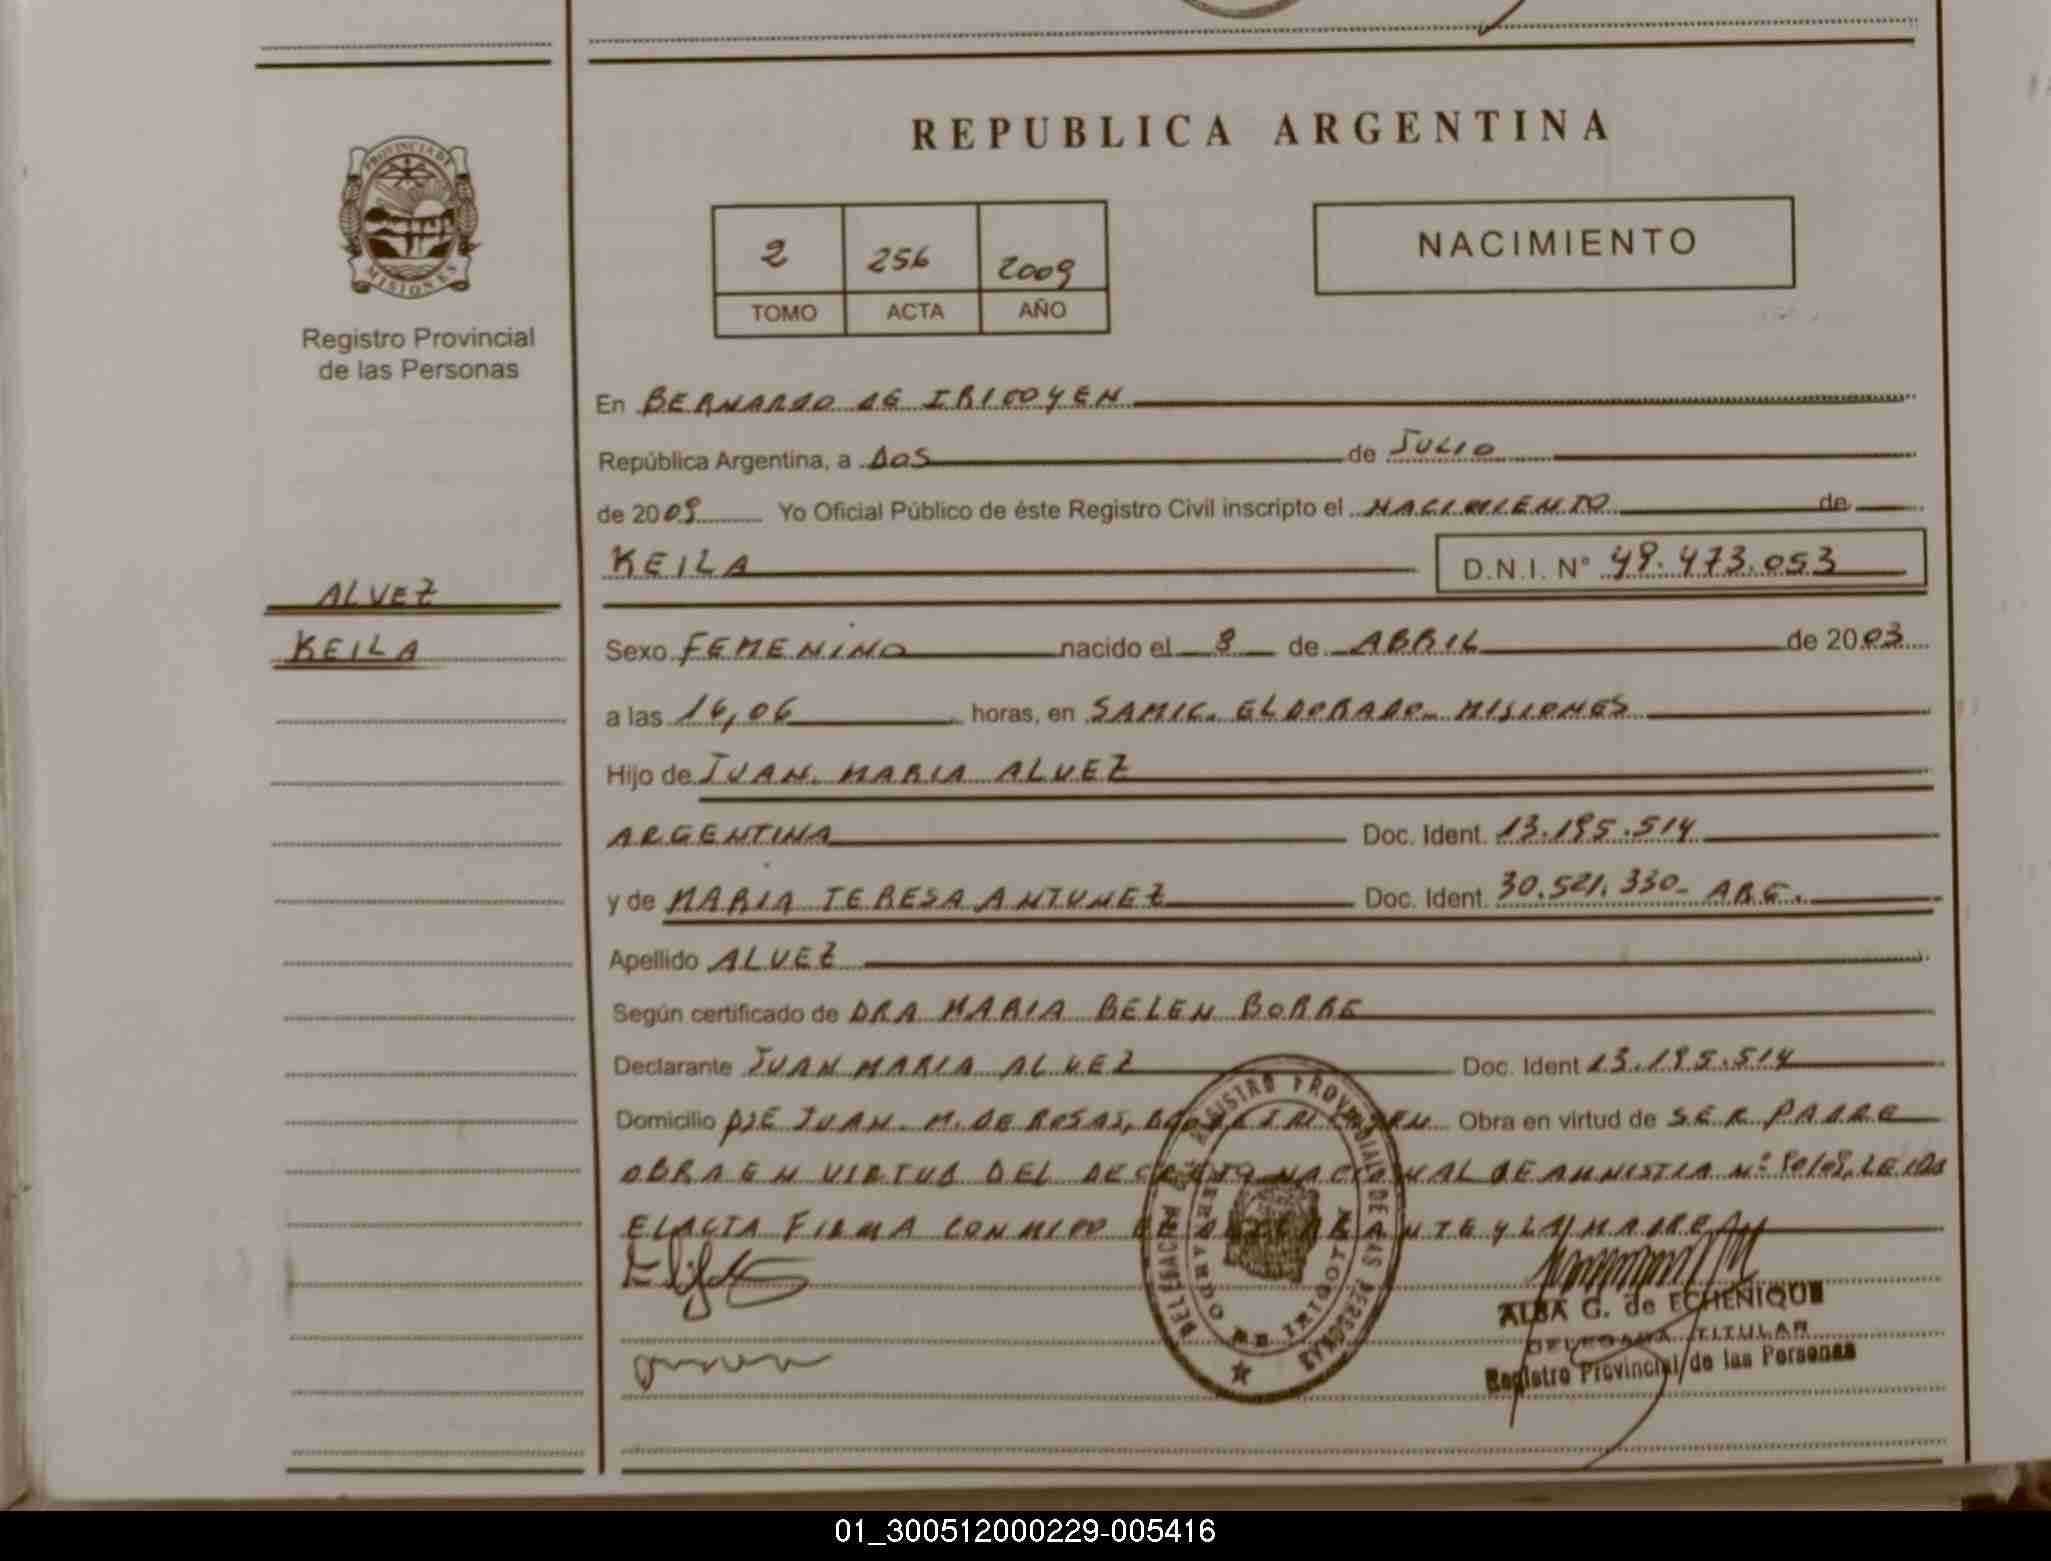 PROVINCIA DE
MISIONES
Registro Provincial
de las Personas
ALVEZ
KEILA
REPUBLICA ARGENTINA
2 256 2009
TOMO ACTA AÑO
NACIMIENTO
En BERNARDO DE IRIGOYEN
República Argentina, a DOS de JULIO
de 2009 Yo Oficial Público de éste Registro Civil inscripto el NACIMIENTO de
KEILA D.N.I. N° 49.473.053
Sexo FEMENINO nacido el 8 de ABRIL de 2003
a las 16,06 horas, en SAMIC. ELDORADO- MISIONES
Hijo de JUAN. MARIA ALVEZ
ARGENTINA Doc. Ident. 13.195.514
y de MARIA TERESA ANTUNEZ Doc. Ident. 30.521.330- ARG.
Apellido ALVEZ
Según certificado de DRA MARIA BELEN BORRE
Declarante JUAN MARIA ALVEZ Doc. Ident 13.195.514
Domicilio JUAN. M. DE ROSAS, Obra en virtud de SER PADRE
OBRA EN VIRTUD DEL DECRETO NACIONAL DE AMNISTIA N° 90/09, LEIDA
EL ACTA FIRMA CONMIGO EL DECLARANTE Y LA MADRE
DELEGACION DEL REGISTRO PROVINCIAL DE LAS PERSONAS
BERNARDO DE IRIGOYEN
ALBA G. de ECHENIQUE
DELEGADA TITULAR
Registro Provincial de las Personas
01_300512000229-005416